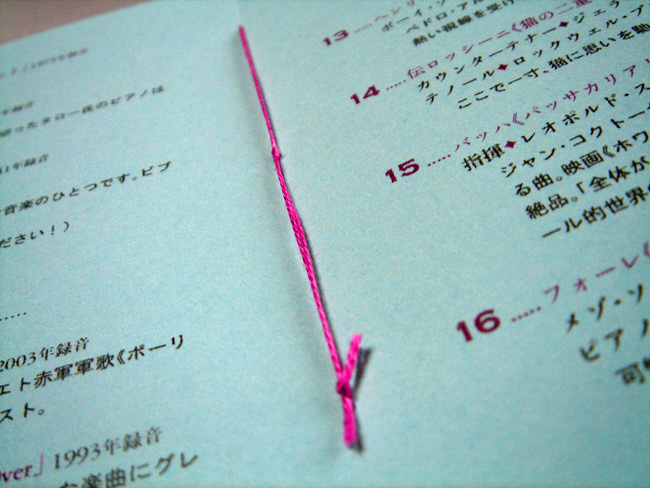 年録音
切ったタロー氏のピアノは
1年録音
音楽のひとつです。ビブ
ださい!)
......
2003年録音
エト赤軍軍歌《ポーリ
スト。
ver」1993年録音
な楽曲にグレ
13 .....ヘンリ
ボーイ・ソ
ペドロ・アル
熱い視線を受け
14 .....伝ロッシーニ《猫の二重
カウンターテナー◆ジェラ
テノール◆ロックウェル・ブ
ここで一寸、猫に思いを馳
15 .....バッハ《パッサカリア
指揮◆レオポルド・ス
ジャン・コクトー
る曲。映画《ホワ
絶品。「全体が
ール的世界
16 .....フォーレ《
メゾ・ソ
ピアノ
可